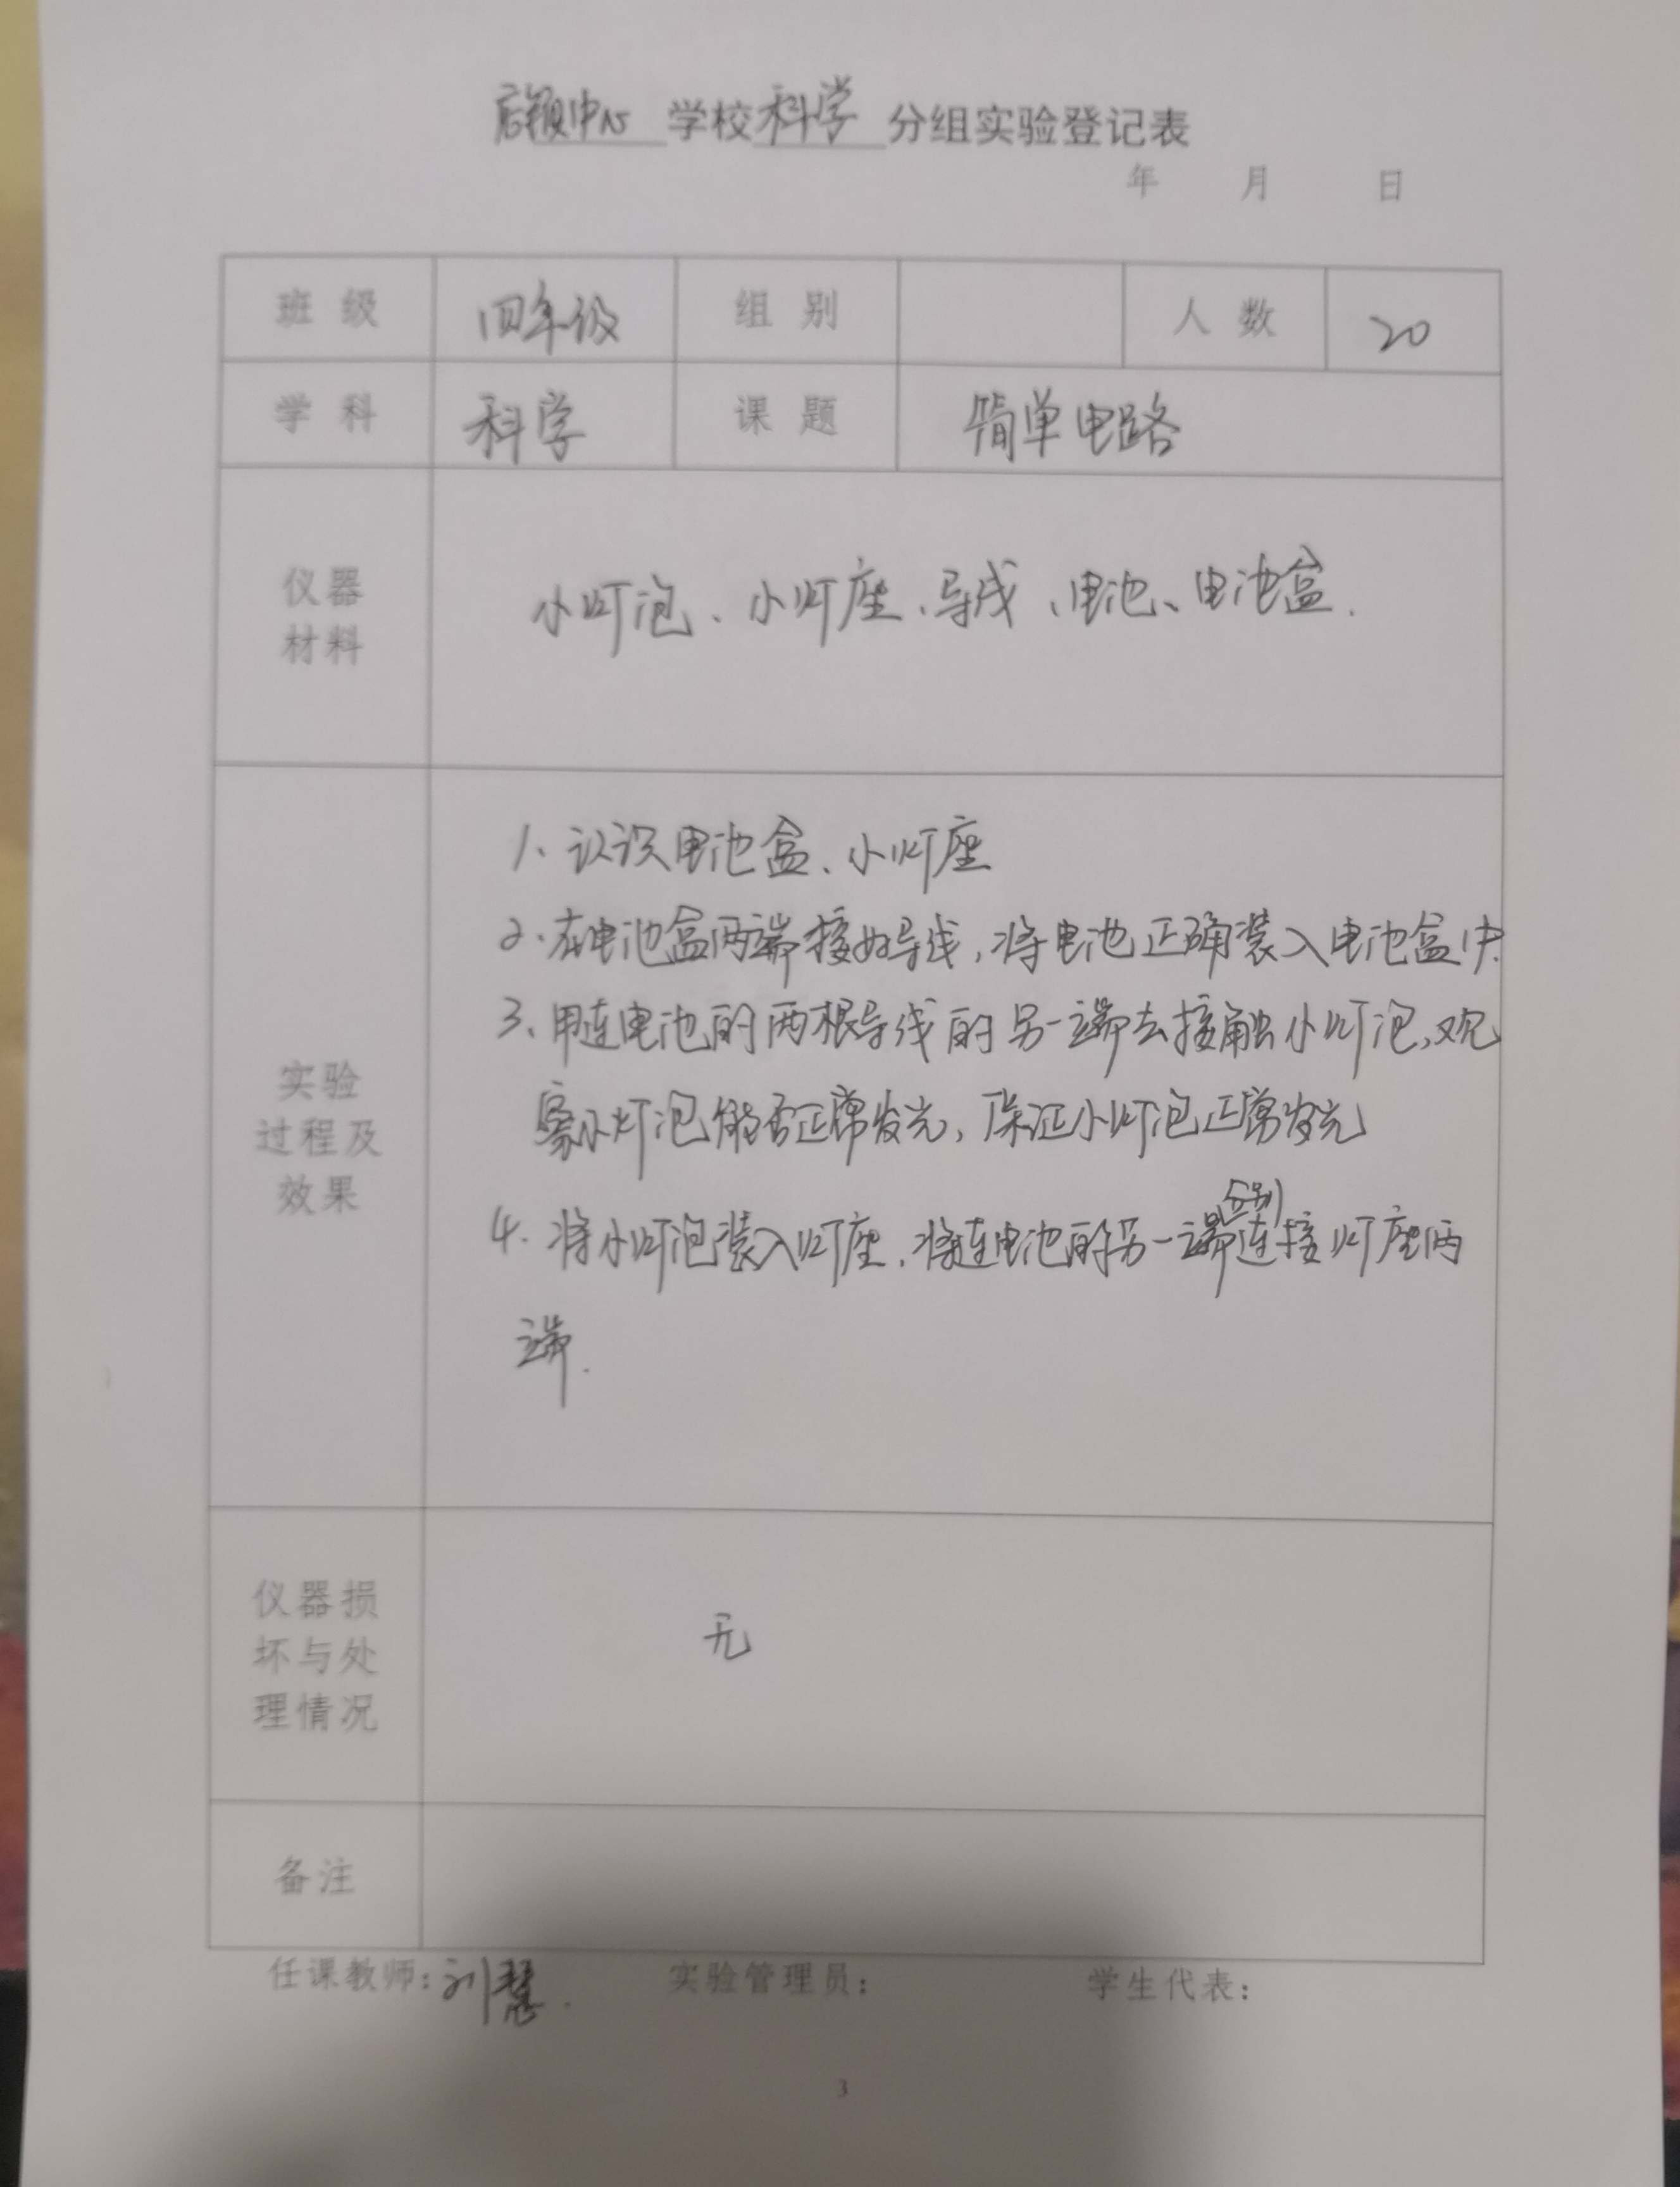 中心 学校 科学 分组实验登记表
年 月 日
班 级 四年级 组 别 人 数 20
学 科 科学 课 题 简单电路
仪器
材料
小灯泡、小灯座、导线、电池、电池盒.
实验
过程及
效果
1、认识电池盒、小灯座
2、在电池盒两端接好导线,将电池正确装入电池盒中.
3、用连电池的两根导线的另一端去接触小灯泡,观
察小灯泡能否正常发光,保证小灯泡正常发光
4. 将小灯泡装入灯座,将连电池的另一端分别连接灯座两
端.
仪器损
坏与处
理情况
无
备注
任课教师:刘慧. 实验管理员: 学生代表:
3